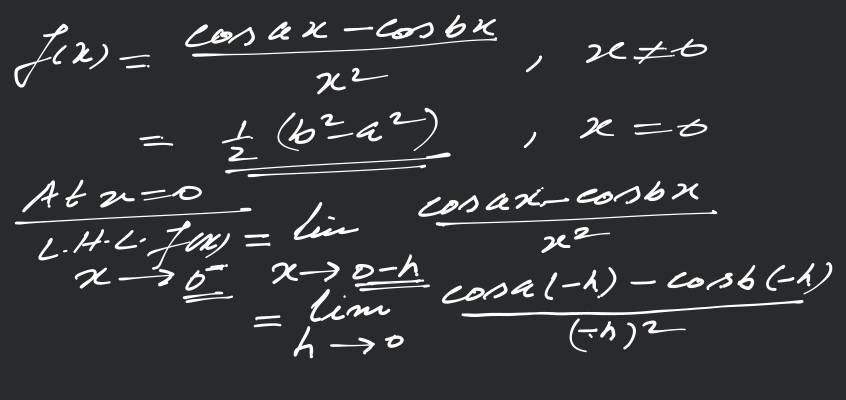 f(x) = (cos ax - cos bx) / x² , x ≠ 0
= 1/2 (b² - a²) , x = 0
At x = 0
L.H.L. f(x) x → 0⁻ = lim x → 0-h (cos ax - cos bx) / x²
= lim h → 0 (cos a(-h) - cos b(-h)) / (-h)²